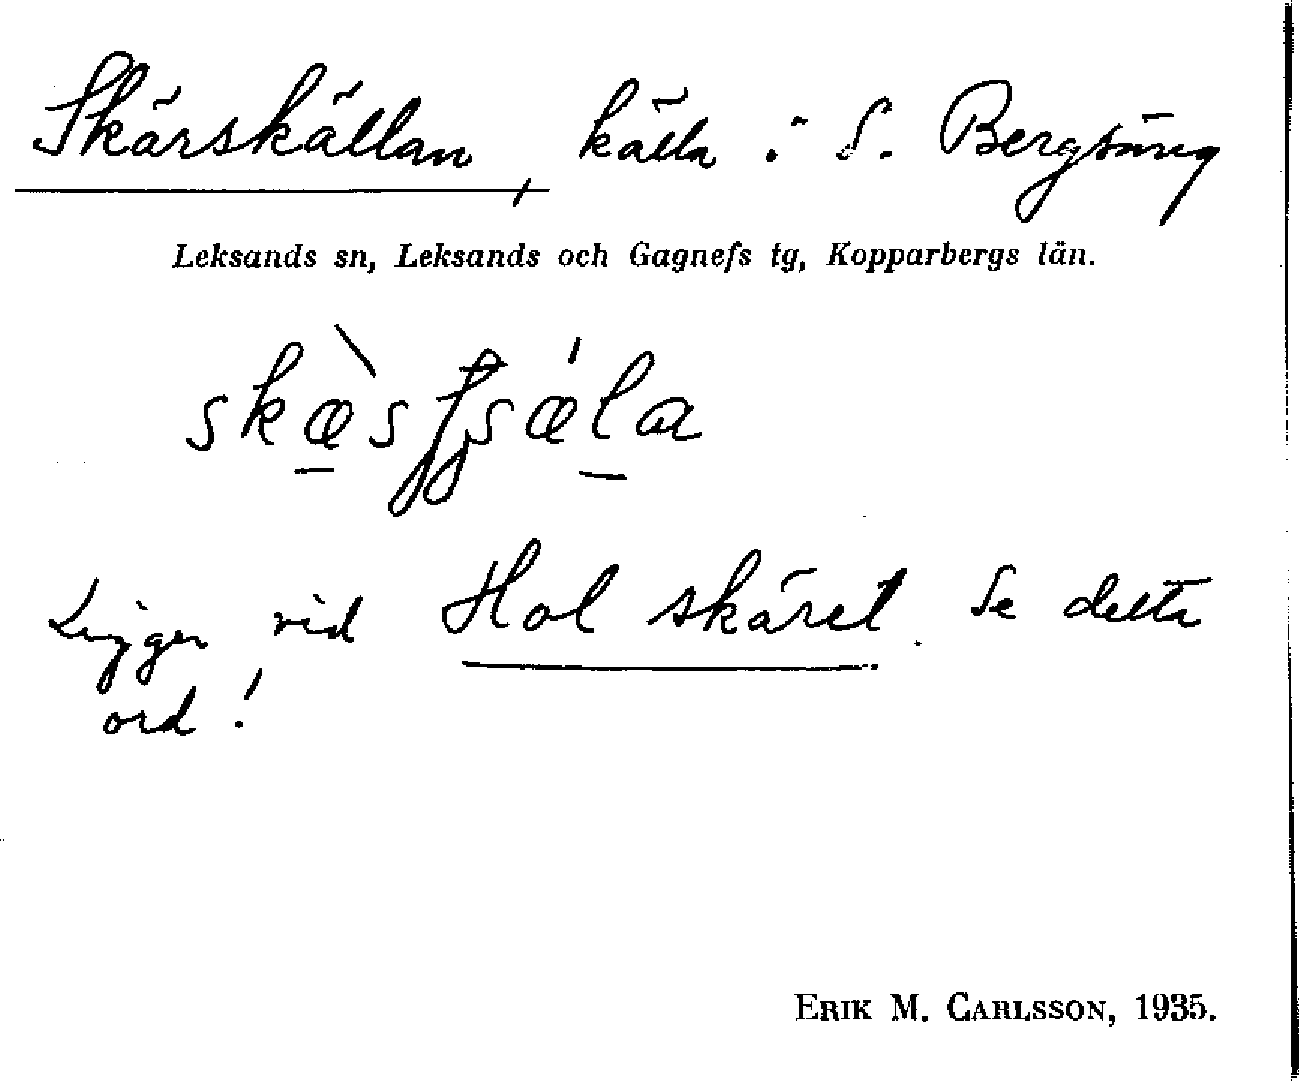 Skärskällan, källa i S. Bergsäng
Leksands sn, Leksands och Gagnefs tg, Kopparbergs län.
Ligger vid Hol skäret. Se detta
ord!
ERIK M. CARLSSON, 1935.